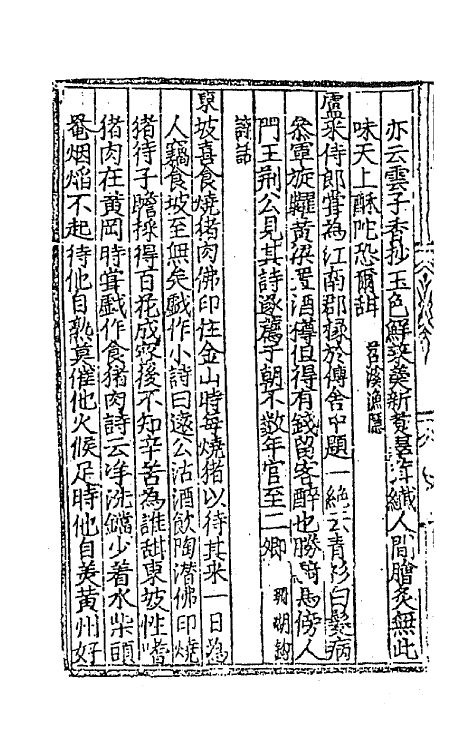 亦云雲子香抄玉色鮮菜羹新煑翠茸纖人間膾炙無此
味天上酥陀恐爾甜 苕溪漁隱
盧秉侍郎嘗為江南郡掾於傳舍中題一絶云青衫白髮病
叅軍旋糶黃粱置酒樽但得有錢留客醉也勝騎馬傍人
門王荆公見其詩遂薦于朝不数年官至二卿 珊瑚鈎
詩話
東坡喜食燒猪肉佛印住金山時每燒猪以待其来一日為
人竊食坡至無矣戲作小詩曰遠公沽酒飲陶潜佛印燒
猪待子瞻採得百花成蜜後不知辛苦為誰甜東坡性嗜
猪肉在黃岡時嘗戲作食猪肉詩云净洗鐺少着水柴頭
罨烟焰不起待他自熟莫催他火候足時他自美黃州好